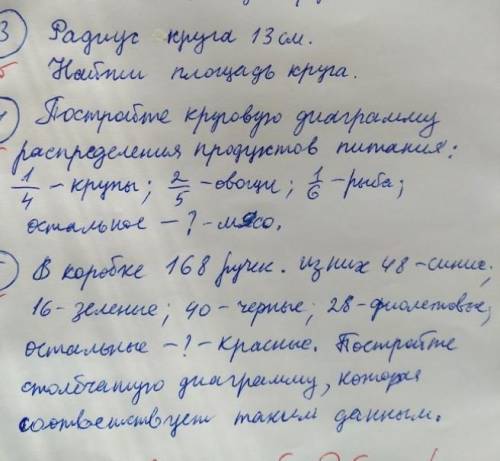 3 Радиус круга 13 см.
Найти площадь круга.
Постройте круговую диаграмму
распределения продуктов питания:
1/4 - крупы; 2/5 - овощи; 1/6 - рыба;
остальное - ? - мясо.
В коробке 168 ручек. из них 48 - синие;
16 - зеленые; 40 - черные; 28 - фиолетовые;
остальные - ? - красные. Постройте
столбчатую диаграмму, которая
соответствует таким данным.